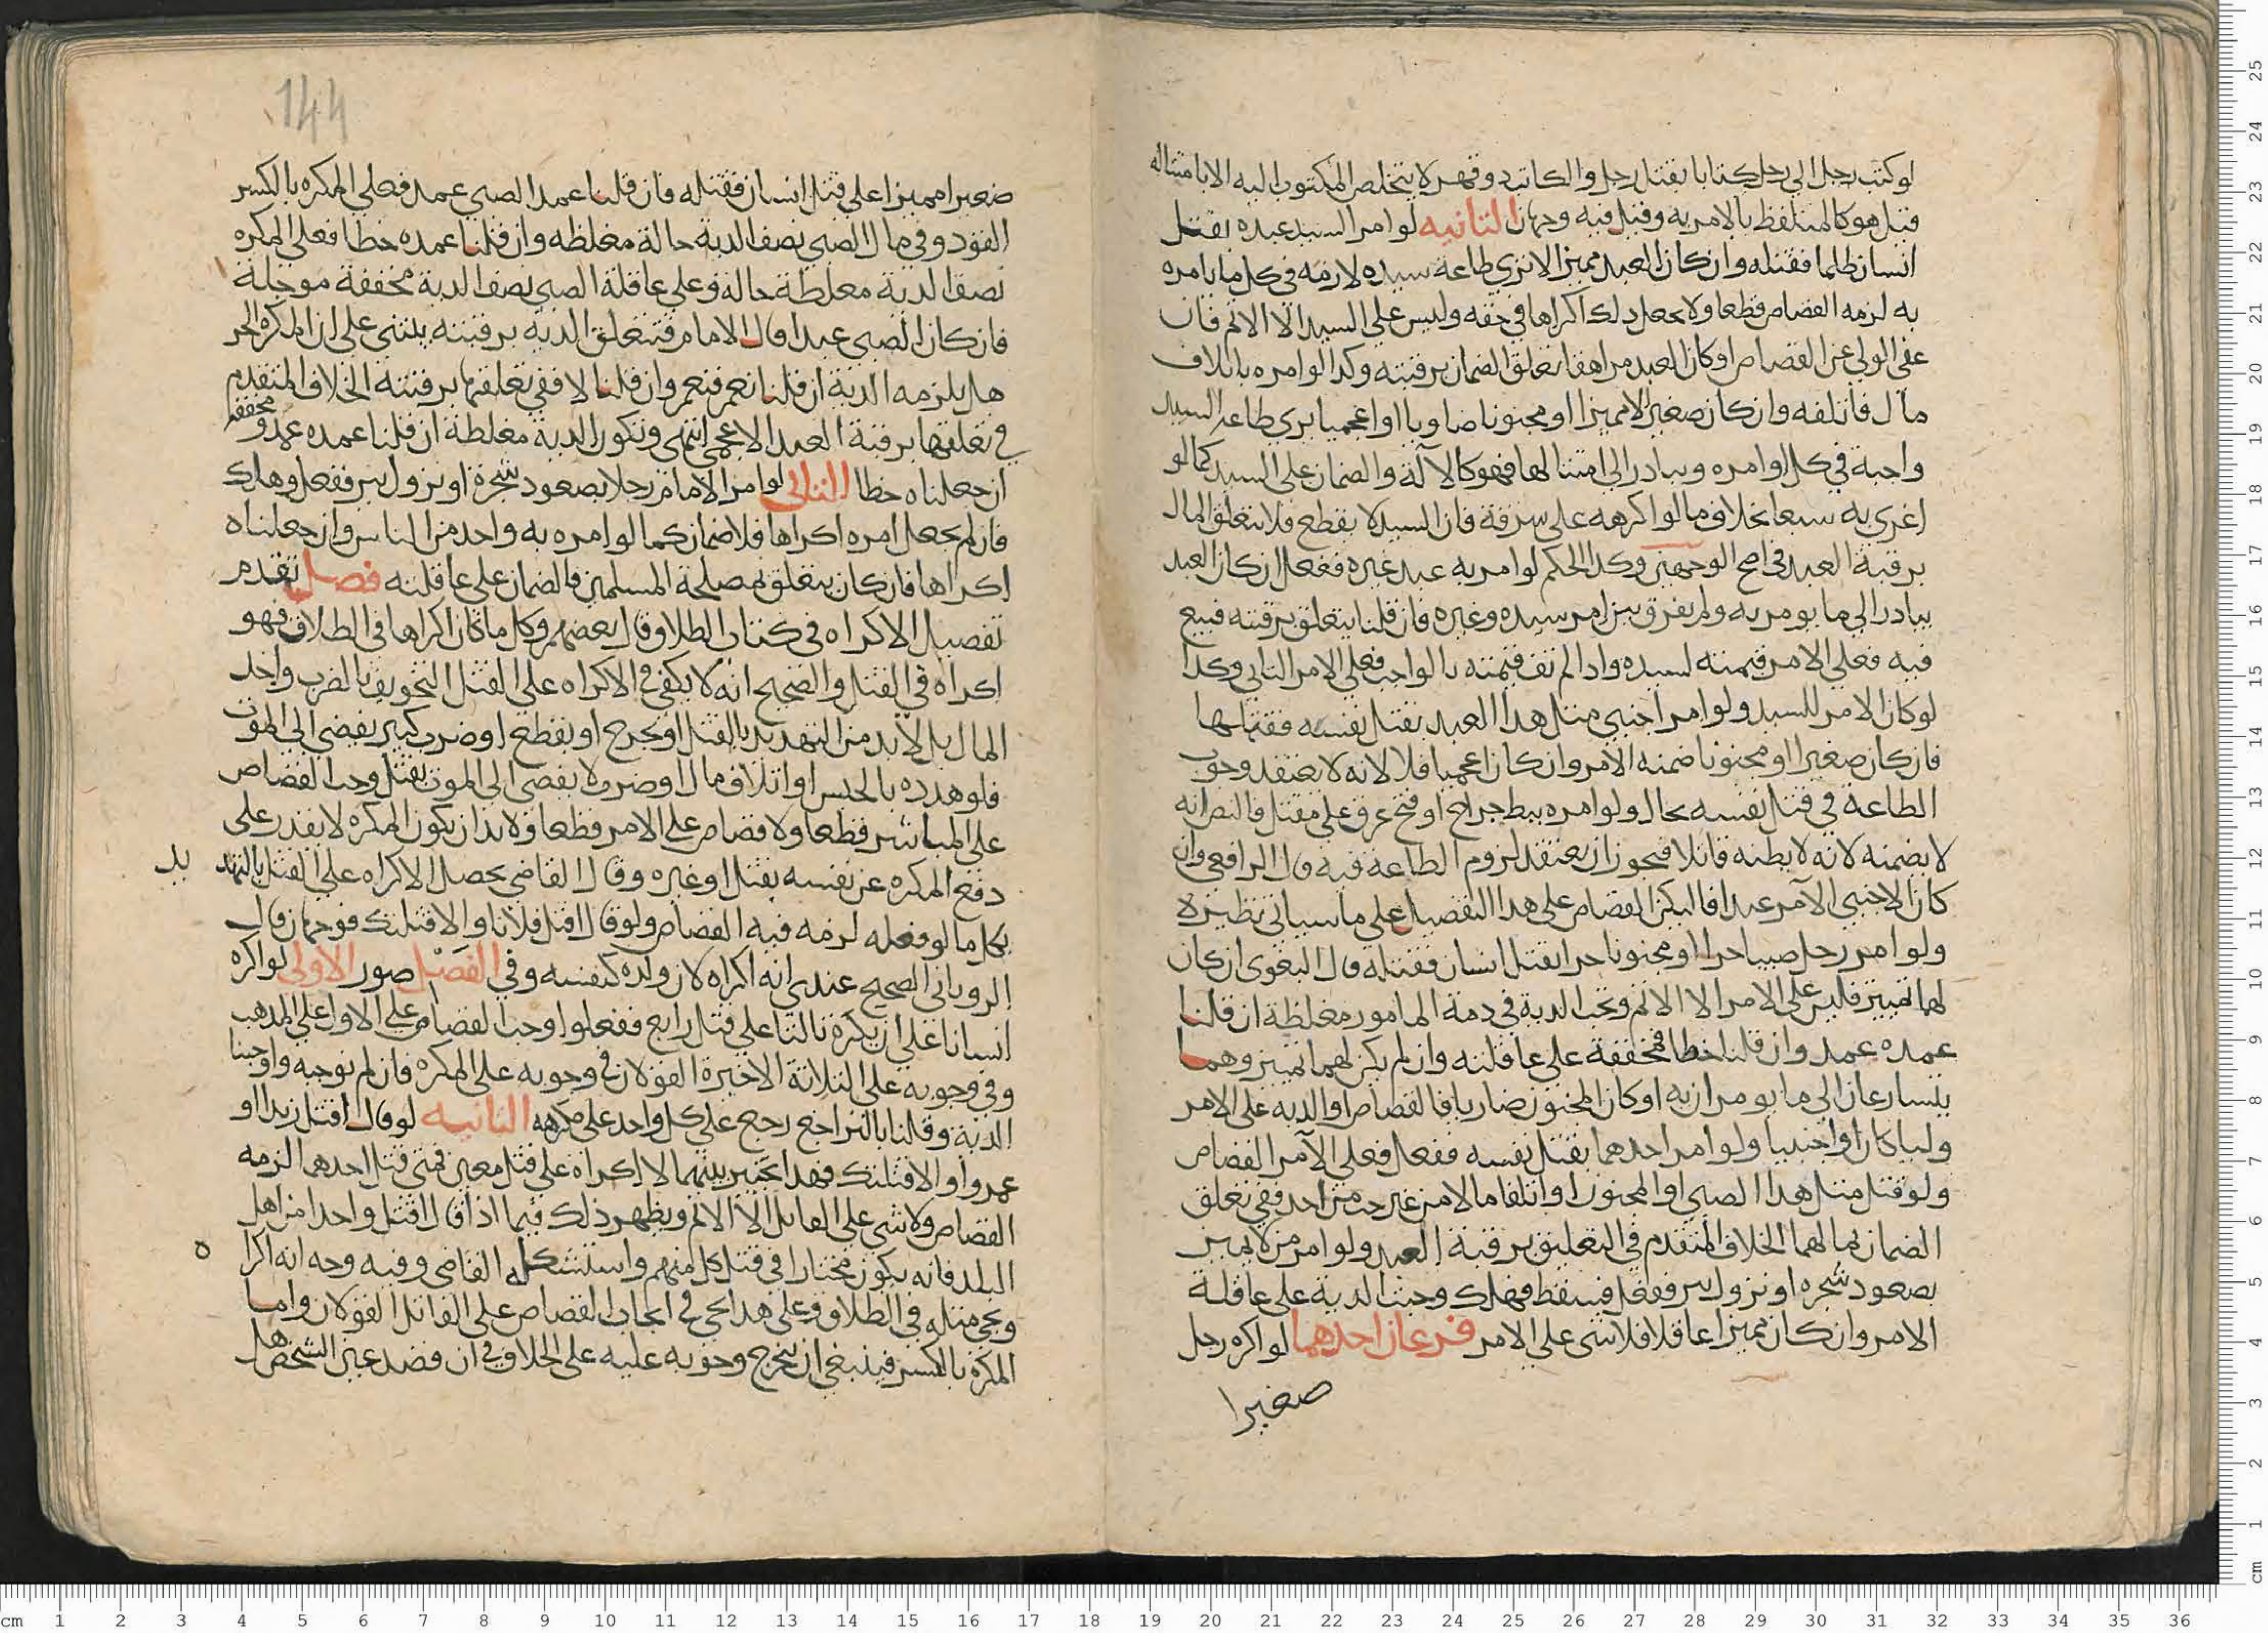 لو كتب رجل الي رجل كتابا بقتل رجل والكاتب ذو قهر لا يتخلص المكتوب اليه الا بامتثاله
قتل هو كالمتلفظ بالامر به وقيل فيه وجهان الثانيه لو امر السيد عبده بقتل
انسان ظلما فقتله وان كان العبد مميزا لا يري طاعة سيده لازمه في كل ما يامره
به لزمه القصاص قطعا ولا يجعل ذلك اكراها في حقه وليس علي السيد الا الاثم فان
عفي الولي عن القصاص او كان العبد مراهقا تعلق الضمان برقبته وكذا لو امره باتلاف
مال فاتلفه وان كان صغيرا لا مميزا او مجنونا ضاريا او اعجميا يري طاعة السيد
واجبة في كل اوامره ويبادر الي امتثالها فهو كالآلة والضمان علي السيد كما لو
اغري به سبعا بخلاف ما لو اكرهه علي سرقة فان السيد لا يقطع فلا يتعلق المال
برقبة العبد في اصح الوجهين وكذا الحكم لو امر به عبد غيره ففعل ان كان العبد
يبادر الي ما يومر به ولم يفرق بين امر سيده وغيره فان قلنا يتعلق برقبته فبيع
فيه فعلي الامر قيمته لسيده واذا لم تف قيمته بالواجب فعلي الامر الثاني وكذا
لو كان الامر للسيد ولو امر اجنبي مثل هذا العبد بقتل نفسه فقتلها
فان كان صغيرا او مجنونا ضمنه الآمر وان كان اعجميا فلا لانه لا يعتقد وجوب
الطاعة في قتل نفسه بحال ولو امره ببط جراح او فتح عرق علي مقتل فالنص انه
لا يضمنه لانه لا يظنه قاتلا فيجوز ان يعتقد لزوم الطاعة فيه قال الرافعي وان
كان الاجنبي الآمر عبدا فاليكن القصاص علي هذا التفصيل علي ما سياتي نظيره
ولو امر رجل صبيا حرا او مجنونا حرا بقتل انسان فقتله قال البغوي ان كان
لهما تمييز فليس علي الامر الا الاثم وتجب الدية في ذمة المامور مغلظة ان قلنا
عمده عمد وان قلنا خطا فمخففة علي عاقلته وان لم يكن لهما تمييز وهما
يتسارعان الي ما يومران به او كان المجنون ضاريا فالقصاص او الدية علي الامر
وليا كان او اجنبيا ولو امر احدهما بقتل نفسه ففعل فعلي الآمر القصاص
ولو قتل مثل هذا الصبي او المجنون او اتلفا مالا من غير حث من احد ففي تعلق
الضمان بمالهما الخلاف المتقدم في التعليق برقبة العبد ولو امر من لا يميز
بصعود شجره او نزول بير ففعل فسقط فهلك وجبت الدية علي عاقلة
الامر وان كان مميزا عاقلا فلا شي علي الامر فرعان احدهما لو اكره رجل
صغيرا
144
صغيرا مميزا علي قتل انسان فقتله فان قلنا عمد الصبي عمد فعلي المكره بالكسر
القود وفي مال الصبي نصف الدية حالة مغلظه وان قلنا عمده خطا فعلي المكره
نصف الدية مغلظة حالة وعلي عاقلة الصبي نصف الدية مخففة موجلة
فان كان الصبي عبدا قال الامام فتتعلق الدية برقبته يبتني علي ان المكره الحر
هل يلزمه الدية ان قلنا نعم فنعم وان قلنا لا ففي تعلقها برقبته الخلاف المتقدم
في تعلقها برقبة العبد الاعجمي انتهي وتكون الدية مغلظة ان قلنا عمده عمد ومخففة
ان جعلناه خطا الثاني لو امر الامام رجلا بصعود شجرة او نزول بير ففعل وهلك
فان لم يجعل امره اكراها فلا ضمان كما لو امره به واحد من الناس وان جعلناه
اكراها فان كان يتعلق بمصلحة المسلمين فالضمان علي عاقلته فصل تقدم
تفصيل الاكراه في كتاب الطلاق وقال بعضهم وكل ما كان اكراها في الطلاق فهو
اكراه في القتل والصحيح انه لا يكفي في الاكراه علي القتل التخويف بالضرب واخذ
المال بل لا بد من التهديد بالقتل او بجرح او بقطع او ضرب كبير يفضي الي الموت
فلو هدده بالحبس او اتلاف مال او ضرب لا يفضي الي الموت بقتل وجب القصاص
علي المباشر قطعا ولا قصاص علي الامر قطعا ولا بد ان يكون المكره لا يقدر علي
دفع المكره عن نفسه بقتل او غيره وقال القاضي يحصل الاكراه علي القتل بالتهد
يد
بكل ما لو فعله لزمه فيه القصاص ولو قال اقتل فلانا والا قتلتك فوجهان قال
الروياني الصحيح عندي انه اكراه لان ولده كنفسه وفي الفصل صور الاولي لو اكره
انسانا علي ان يكره ثالثا علي قتل رابع ففعلوا وجب القصاص علي الاول علي المذهب
وفي وجوبه علي الثلاثة الاخيرة القولان في وجوبه علي المكره فان لم نوجبه واوجبنا
الدية وقلنا بالتراجع رجع علي كل واحد علي مكرهه الثانيه لو قال اقتل زيدا او
عمروا والا قتلتك فهذا تخيير بينهما لا اكراه علي قتل معين فمتي قتل احدهما لزمه
القصاص ولا شي علي القايل الا الاثم ويظهر ذلك فيما اذا قال اقتل واحدا من اهل
البلد فانه يكون مختارا في قتل كل منهم واستشكله القاضي وفيه وجه انه اكرا
ه
ويجي مثله في الطلاق وعلي هذا يجي في ايجاب القصاص علي القاتل القولان واما
المكره بالكسر فينبغي ان يخرج وجوبه عليه علي الخلاف في ان قصد عين الشخص هل